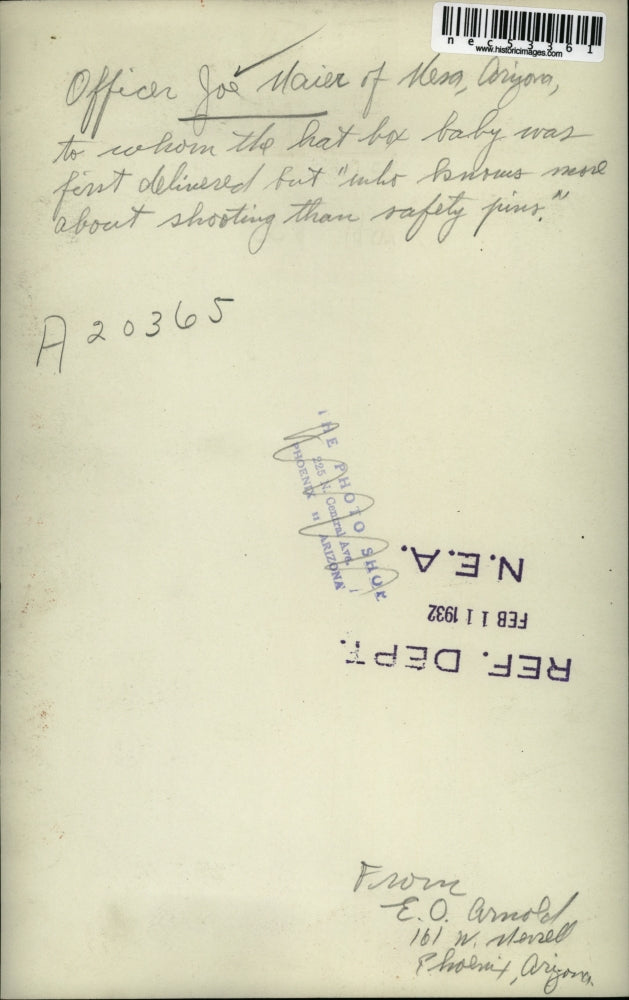 necs53361
www.historicimages.com
Officer Joe Maier of Mesa, Arizona,
to whom the hat box baby was
first delivered but "who knows more
about shooting than safety pins."
A20365
THE PHOTO SHOP
225 N. Central Ave.
PHOENIX :: ARIZONA
REF. DEPT.
FEB 11 1932
N.E.A.
From
E.O. Arnold
161 W.
Phoenix, Arizona.